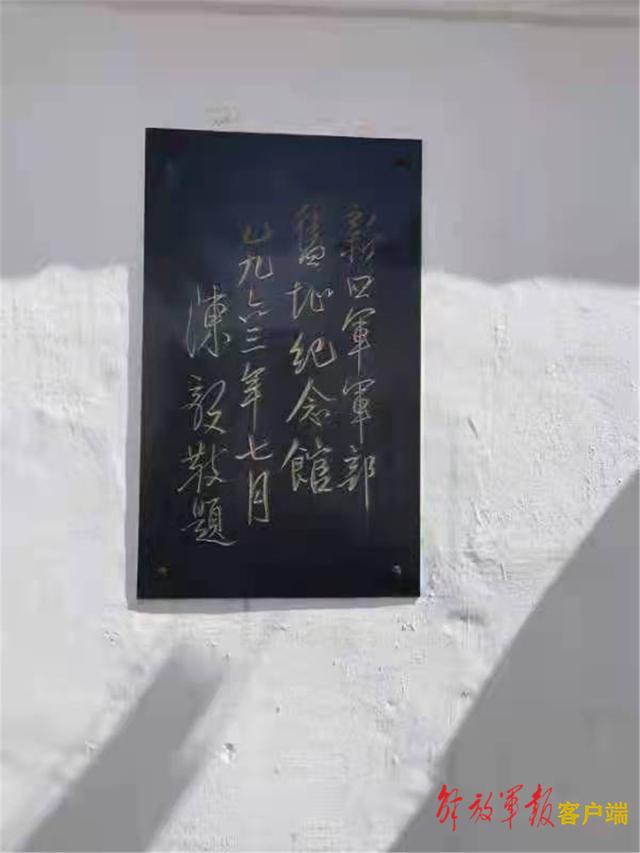 新四軍軍部
舊址纪念館
一九六三年七月
陳毅敬題
解放軍報客户端